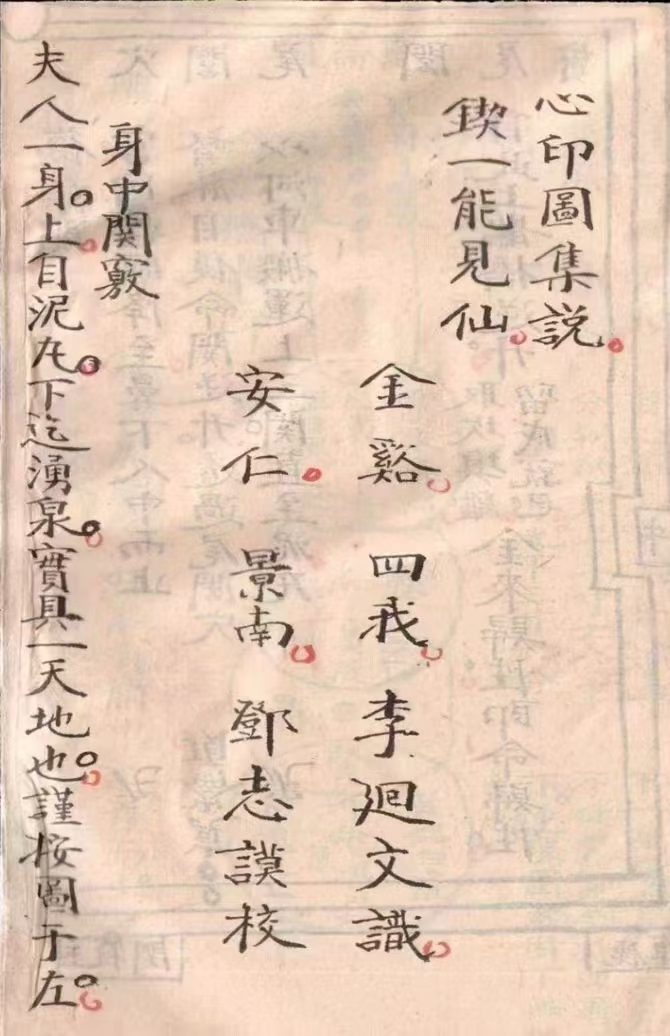 心印圖集説。
鍥一能見仙。
金谿 四我 李廻文識。
安仁。景南。鄧志謨校
身中関竅
夫人一身。上自泥丸。下迄湧泉。實具一天地也。謹按圖于左。